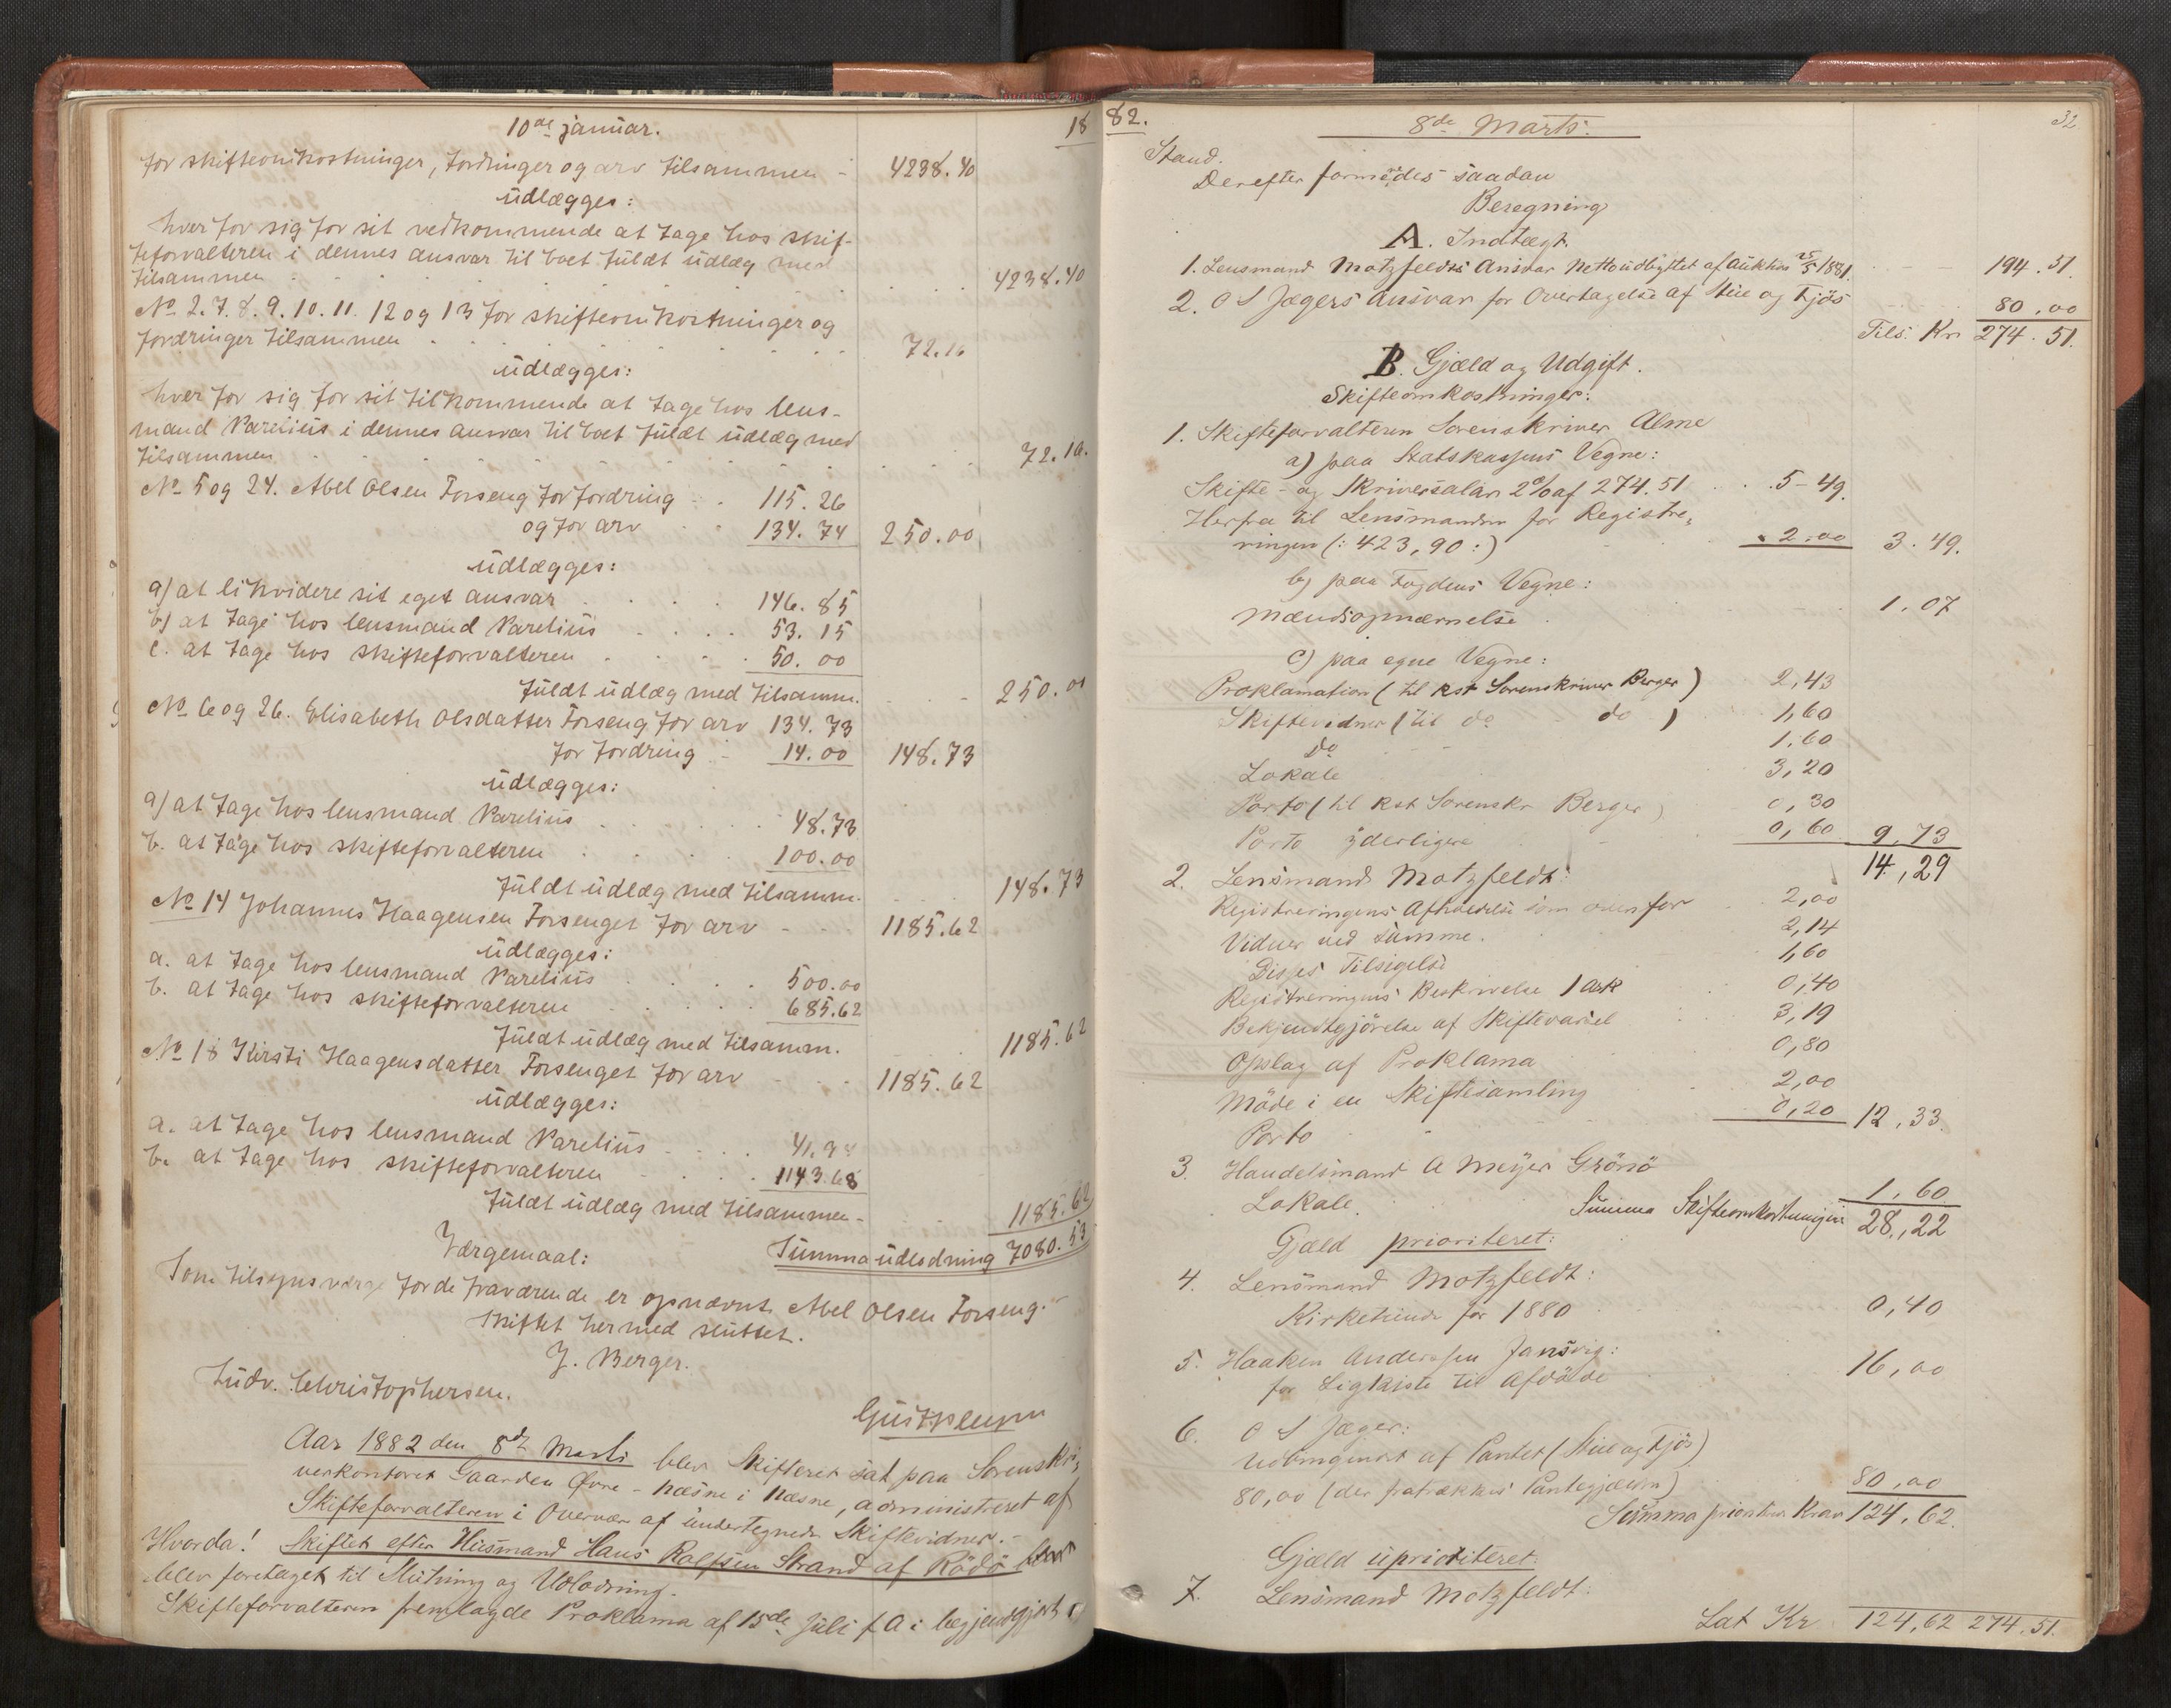 10de januar. 18
for skifteomkostninger, fordringer og arv tilsammen - 4238.40
udlægges:
hver for sig for sit vedkommende at tage hos skif-
teforvalteren i dennes ansvar til boet fuldt udlæg med
tilsammen 4238.40
No 2. 7. 8. 9. 10. 11. 12 og 13 for skifteomkostninger og
fordringer tilsammen 72.10
udlægges:
hver for sig for sit tilkommende at tage hos lens-
mand Parelius i dennes ansvar til boet fuldt udlæg med
tilsammen 72.10.
No 5 og 24. Abel Olsen Forseng for fordring 115.26
og for arv 134.74 250.00
udlægges:
a) at likvidere sit eget ansvar 146.85
b) at tage hos lensmand Parelius 53.15
c. at tage hos skifteforvalteren 50.00
fuldt udlæg med tilsamm. 250.00
No 6 og 26. Elisabeth Olsdatter Forseng for arv 134.73
for fordring 14.00 148.73
udlægges:
a) at tage hos lensmand Parelius 48.73
b. at tage hos skifteforvalteren 100.00
fuldt udlæg med tilsamm. 148.73
No 14 Johannes Haagensen Forsenget for arv 1185.62
udlægges:
a. at tage hos lensmand Parelius 500.00
b. at tage hos skifteforvalteren 685.62
fuldt udlæg med tilsamm. 1185.62
No 18 Kirsti Haagensdatter Forsenget for arv 1185.62
udlægges:
a. at tage hos lensmand Parelius 41.94
b. at tage hos skifteforvalteren 1143.68
fuldt udlæg med tilsammen - 1185.62
Værgemaal: Summa udlodning 7080.53
Som tilsynsværge for de fraværende er opnævnt Abel Olsen Forseng.-
Skiftet hermed sluttet.
J. Berger.
Ludv. Christophersen.
Aar 1882 den 8de Marts blev Skifteret sat paa Sorenskri-
verkontoret Gaarden Øvre-Næsne i Næsne, administreret af
Skifteforvalteren i Overvær af undertegnede Skiftevidner.-
Hvorda! Skiftet efter Husmand Hans Rolfsen Strand af Rödö
blev foretaget til Slutning og Udlodning.
Skifteforvalteren fremlagde Proklama af 15de Juli f A i begjendtgjort
82. 8de Marts. 32
Stand.
Derefter formödes saadan
Beregning
A. Indtægt.
1. Lensmand Motzfeldts Ansvar Nettoudbyttet af Auktion 25/5 1881. 194.51.
2. O S Jægers Ansvar for Overtagelse af Stue og Fjös 80.00
Tils. Kr 274.51.
B. Gjæld og Udgift.
Skifteomkostninger:
1. Skifteforvalteren Sorenskriver Alme
a) paa Statskassens Vegne:
Skifte- og Skriversalær 2% af 274.51 5-49.
Herfra til Lensmanden for Registre-
ringen (: 423,90 :) 2.00 3.49.
b) paa Fogdens Vegne:
Mændsopnævnelse 1.07
c) paa egne Vegne:
Proklamation (til kst Sorenskriver Berger) 2,43
Skiftevidner (til do do ) 1,60
Do 1,60
Lokale 3,20
Porto (til kst Sorenskr Berger) 0,30
Porto yderligere 0,60 9,73
14,29
2. Lensmand Motzfeldt:
Registreringens Afholdelse som ovenfor 2,00
Vidner ved samme. 2,14
Disses Tilsigelse 1,60
Registreringens Beskrivelse 1 Ark 0,40
Bekjendtgjörelse af Skiftevarsel 3,19
Opslag af Proklama 0,80
Möde i en Skiftesamling 2,00
Porto 0,20 12,33.
3. Handelsmand A Meyer Grönö
Lokale 1,60
Summa Skifteomkostningerne 28,22
Gjæld prioriteret:
4. Lensmand Motzfeldt:
Kirketiende for 1880 0,40
5. Haaken Anderssen Jansvig:
for Ligkiste til Afdöde 16,00
6. O S Jæger:
Udbringende af Pantet (Stue og Fjös)
80,00 (der fratrækkes Pantegjælden) 80,00
Summa prioriteret Krav 124,62.
Gjæld uprioriteret:
7. Lensmand Motzfeldt:
Lat Kr 124,62 274.51.